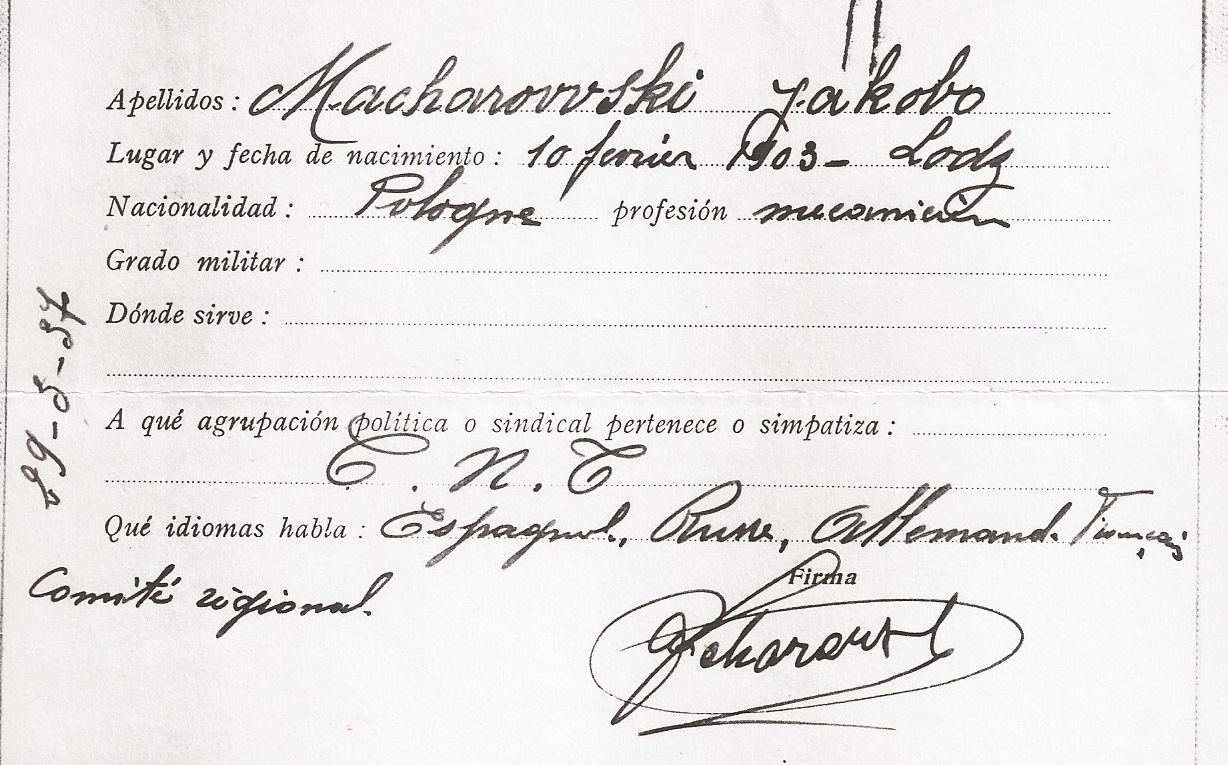 Apellidos : Macharovvski Jakobo
Lugar y fecha de nacimiento : 10 fevrier 1903 - Lodz
Nacionalidad : Pologne profesión mecanicien
Grado militar :
Dónde sirve :
A qué agrupación política o sindical pertenece o simpatiza :
C. N. T
Qué idiomas habla : Espagnol, Russe, Allemand. Français
Firma
Comité régional.
29-5-37